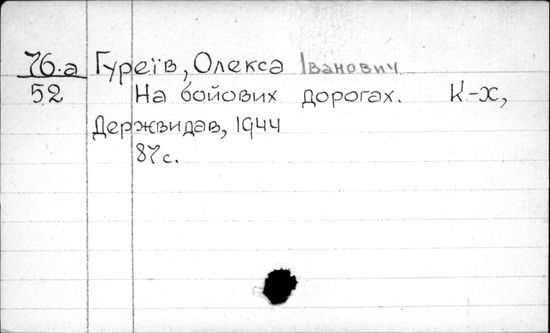 76.а Гуреїв, Олекса Іванович
52 На бойових дорогах. К-х,
Держвидав, 1944
87с.